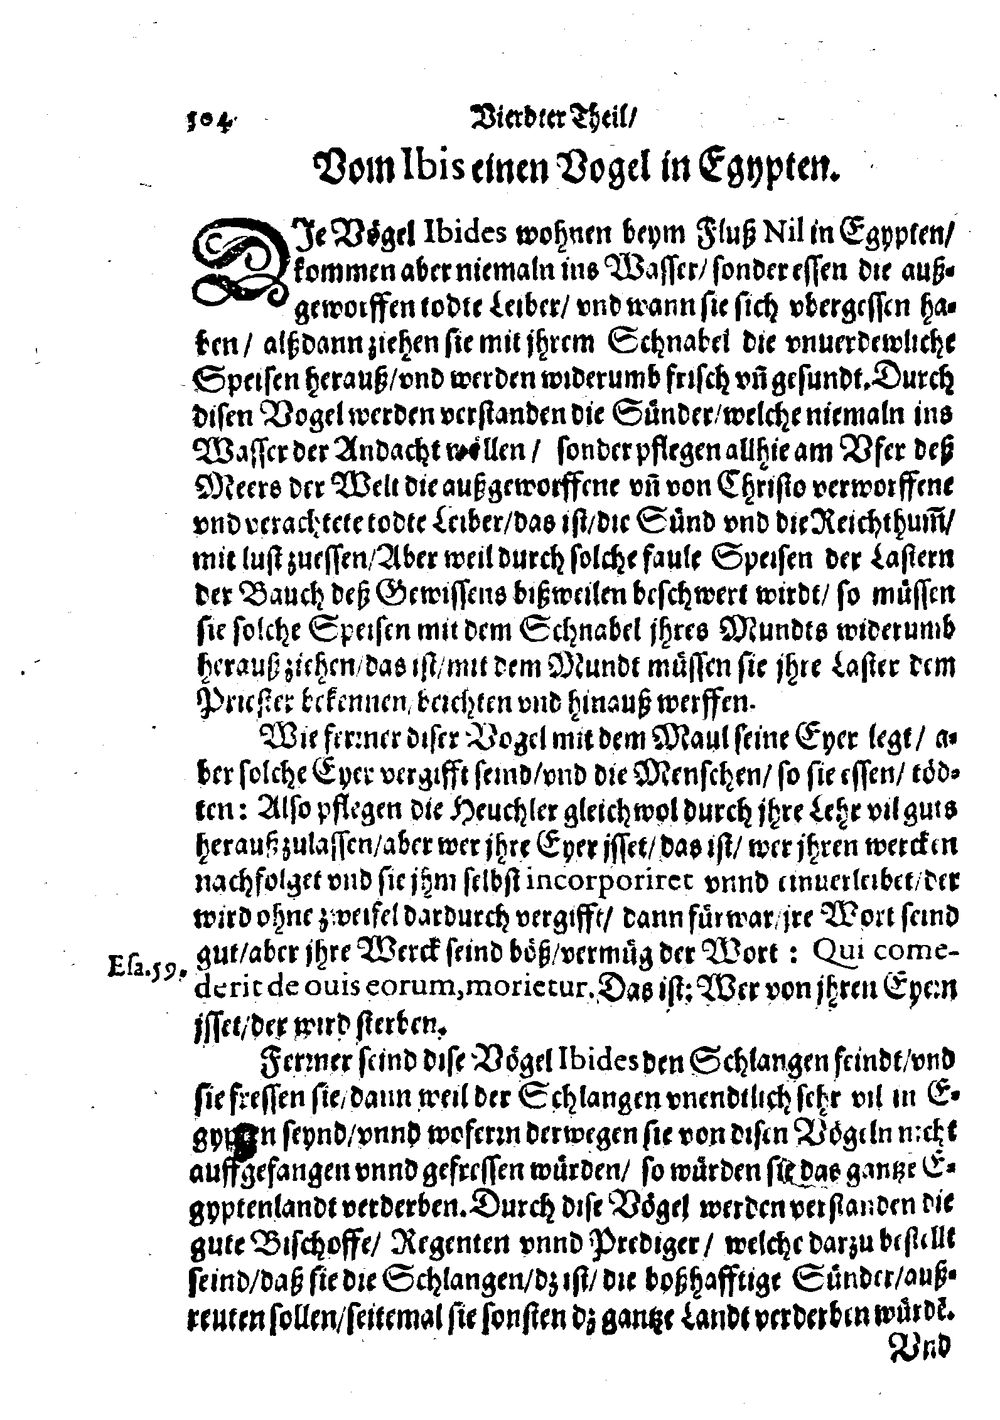 504 Vierdter Theil/
Vom Ibis einen Vogel in Egypten.
DIe Vögel Ibides wohnen beym Fluß Nil in Egypten/
kommen aber niemaln ins Wasser/ sonder essen die auß-
geworffen todte Leiber/ vnd wann sie sich vbergessen ha-
ben/ alßdann ziehen sie mit jhrem Schnabel die vnuerdewliche
Speisen herauß/vnd werden widerumb frisch vñ gesundt. Durch
disen Vogel werden verstanden die Sünder/welche niemaln ins
Wasser der Andacht wöllen/ sonder pflegen allhie am Vfer deß
Meers der Welt die außgeworffene vñ von Christo verworffene
vnd verachtete todte Leiber/das ist/die Sünd vnd die Reichthum̃/
mit lust zuessen/Aber weil durch solche faule Speisen der Lastern
der Bauch deß Gewissens bißweilen beschwert wirdt/ so müssen
sie solche Speisen mit dem Schnabel jhres Mundts widerumb
herauß ziehen/das ist/mit dem Mundt müssen sie jhre Laster dem
Priester bekennen/beichten vnd hinauß werffen.
Wie ferrner diser Vogel mit dem Maul seine Eyer legt/ a-
ber solche Eyer vergifft seind/vnd die Menschen/ so sie essen/ töd-
ten: Also pflegen die Heuchler gleichwol durch jhre Lehr vil guts
herauß zulassen/aber wer jhre Eyer jsset/das ist/ wer jhren wercken
nachfolget vnd sie jhm selbst incorporiret vnnd einuerleibet/der
wird ohne zweifel dardurch vergifft/ dann fürwar/jre Wort seind
gut/aber jhre Werck seind böß/vermüg der Wort : Qui come-
Esa.59.
derit de ouis eorum, morietur. Das ist: Wer von jhren Eyern
jsset/der wird sterben.
Ferrner seind dise Vögel Ibides den Schlangen feindt/vnd
sie fressen sie/dann weil der Schlangen vnendtlich sehr vil in E-
gypten seynd/vnnd woferrn derwegen sie von disen Vögeln nicht
auffgefangen vnnd gefressen würden/ so würden sie das gantze E-
gyptenlandt verderben. Durch dise Vögel werden verstanden die
gute Bischoffe/ Regenten vnnd Prediger/ welche darzu bestellt
seind/daß sie die Schlangen/dz ist/ die boßhafftige Sünder/auß-
reuten sollen/seitemal sie sonsten dz gantze Landt verderben würdẽ.
Vnd